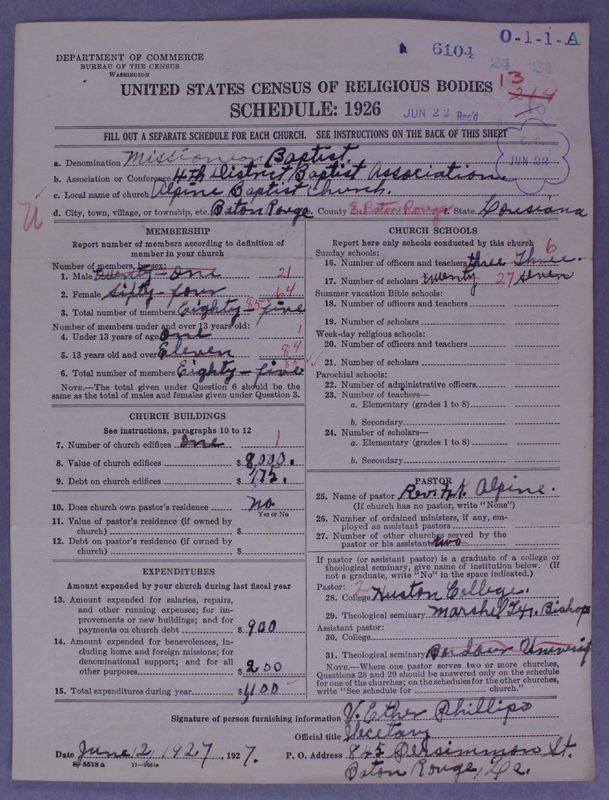 O-1-1-A
6104
DEPARTMENT OF COMMERCE
BUREAU OF THE CENSUS
WASHINGTON
UNITED STATES CENSUS OF RELIGIOUS BODIES
13
214
SCHEDULE: 1926
JUN 22 Rec'd
FILL OUT A SEPARATE SCHEDULE FOR EACH CHURCH. SEE INSTRUCTIONS ON THE BACK OF THIS SHEET
JUN 22
a. Denomination Missionary Baptist.
b. Association or Conference 4th District Baptist Association
c. Local name of church Alpine Baptist Church.
d. City, town, village, or township, etc. Baton Rouge County E. Baton Rouge State Louisiana
MEMBERSHIP
Report number of members according to definition of
member in your church
Number of members, by sex:
1. Male twenty-one 21
2. Female sixty-four 64
3. Total number of members Eighty-five 85
Number of members under and over 13 years old:
4. Under 13 years of age one 1
5. 13 years old and over Eleven 84
6. Total number of members Eighty-five 85
NOTE.—The total given under Question 6 should be the
same as the total of males and females given under Question 3.
CHURCH BUILDINGS
See instructions, paragraphs 10 to 12
7. Number of church edifices one 1
8. Value of church edifices $ 8000.
9. Debt on church edifices $ 175.
10. Does church own pastor's residence no
Yes or No
11. Value of pastor's residence (if owned by
church) $
12. Debt on pastor's residence (if owned by
church) $
EXPENDITURES
Amount expended by your church during last fiscal year
13. Amount expended for salaries, repairs,
and other running expenses; for im-
provements or new buildings; and for
payments on church debt $ 900
14. Amount expended for benevolences, in-
cluding home and foreign missions; for
denominational support; and for all
other purposes $ 200
15. Total expenditures during year $ 1100
CHURCH SCHOOLS
Report here only schools conducted by this church
Sunday schools:
16. Number of officers and teachers three Three. 6
17. Number of scholars twenty 27 seven
Summer vacation Bible schools:
18. Number of officers and teachers
19. Number of scholars
Week-day religious schools:
20. Number of officers and teachers
21. Number of scholars
Parochial schools:
22. Number of administrative officers
23. Number of teachers—
a. Elementary (grades 1 to 8)
b. Secondary
24. Number of scholars—
a. Elementary (grades 1 to 8)
b. Secondary
PASTOR
25. Name of pastor Rev. Alpine.
(If church has no pastor, write "None")
26. Number of ordained ministers, if any, em-
ployed as assistant pastors
27. Number of other churches served by the
pastor or his assistant two
If pastor (or assistant pastor) is a graduate of a college or
theological seminary, give name of institution below. (If
not a graduate, write "No" in the space indicated.)
Pastor: 2
28. College Huston College.
29. Theological seminary Marshel Tex. Bishop
Assistant pastor:
30. College
31. Theological seminary
NOTE.—Where one pastor serves two or more churches,
Questions 28 and 29 should be answered only on the schedule
for one of the churches; on the schedules for the other churches,
write "See schedule for church."
Signature of person furnishing information V. Ether Phillips
Official title Secetary
Date June 12, 1927, 1927. P. O. Address 845 Persimmon St.
Baton Rouge, La.
8-5518 a